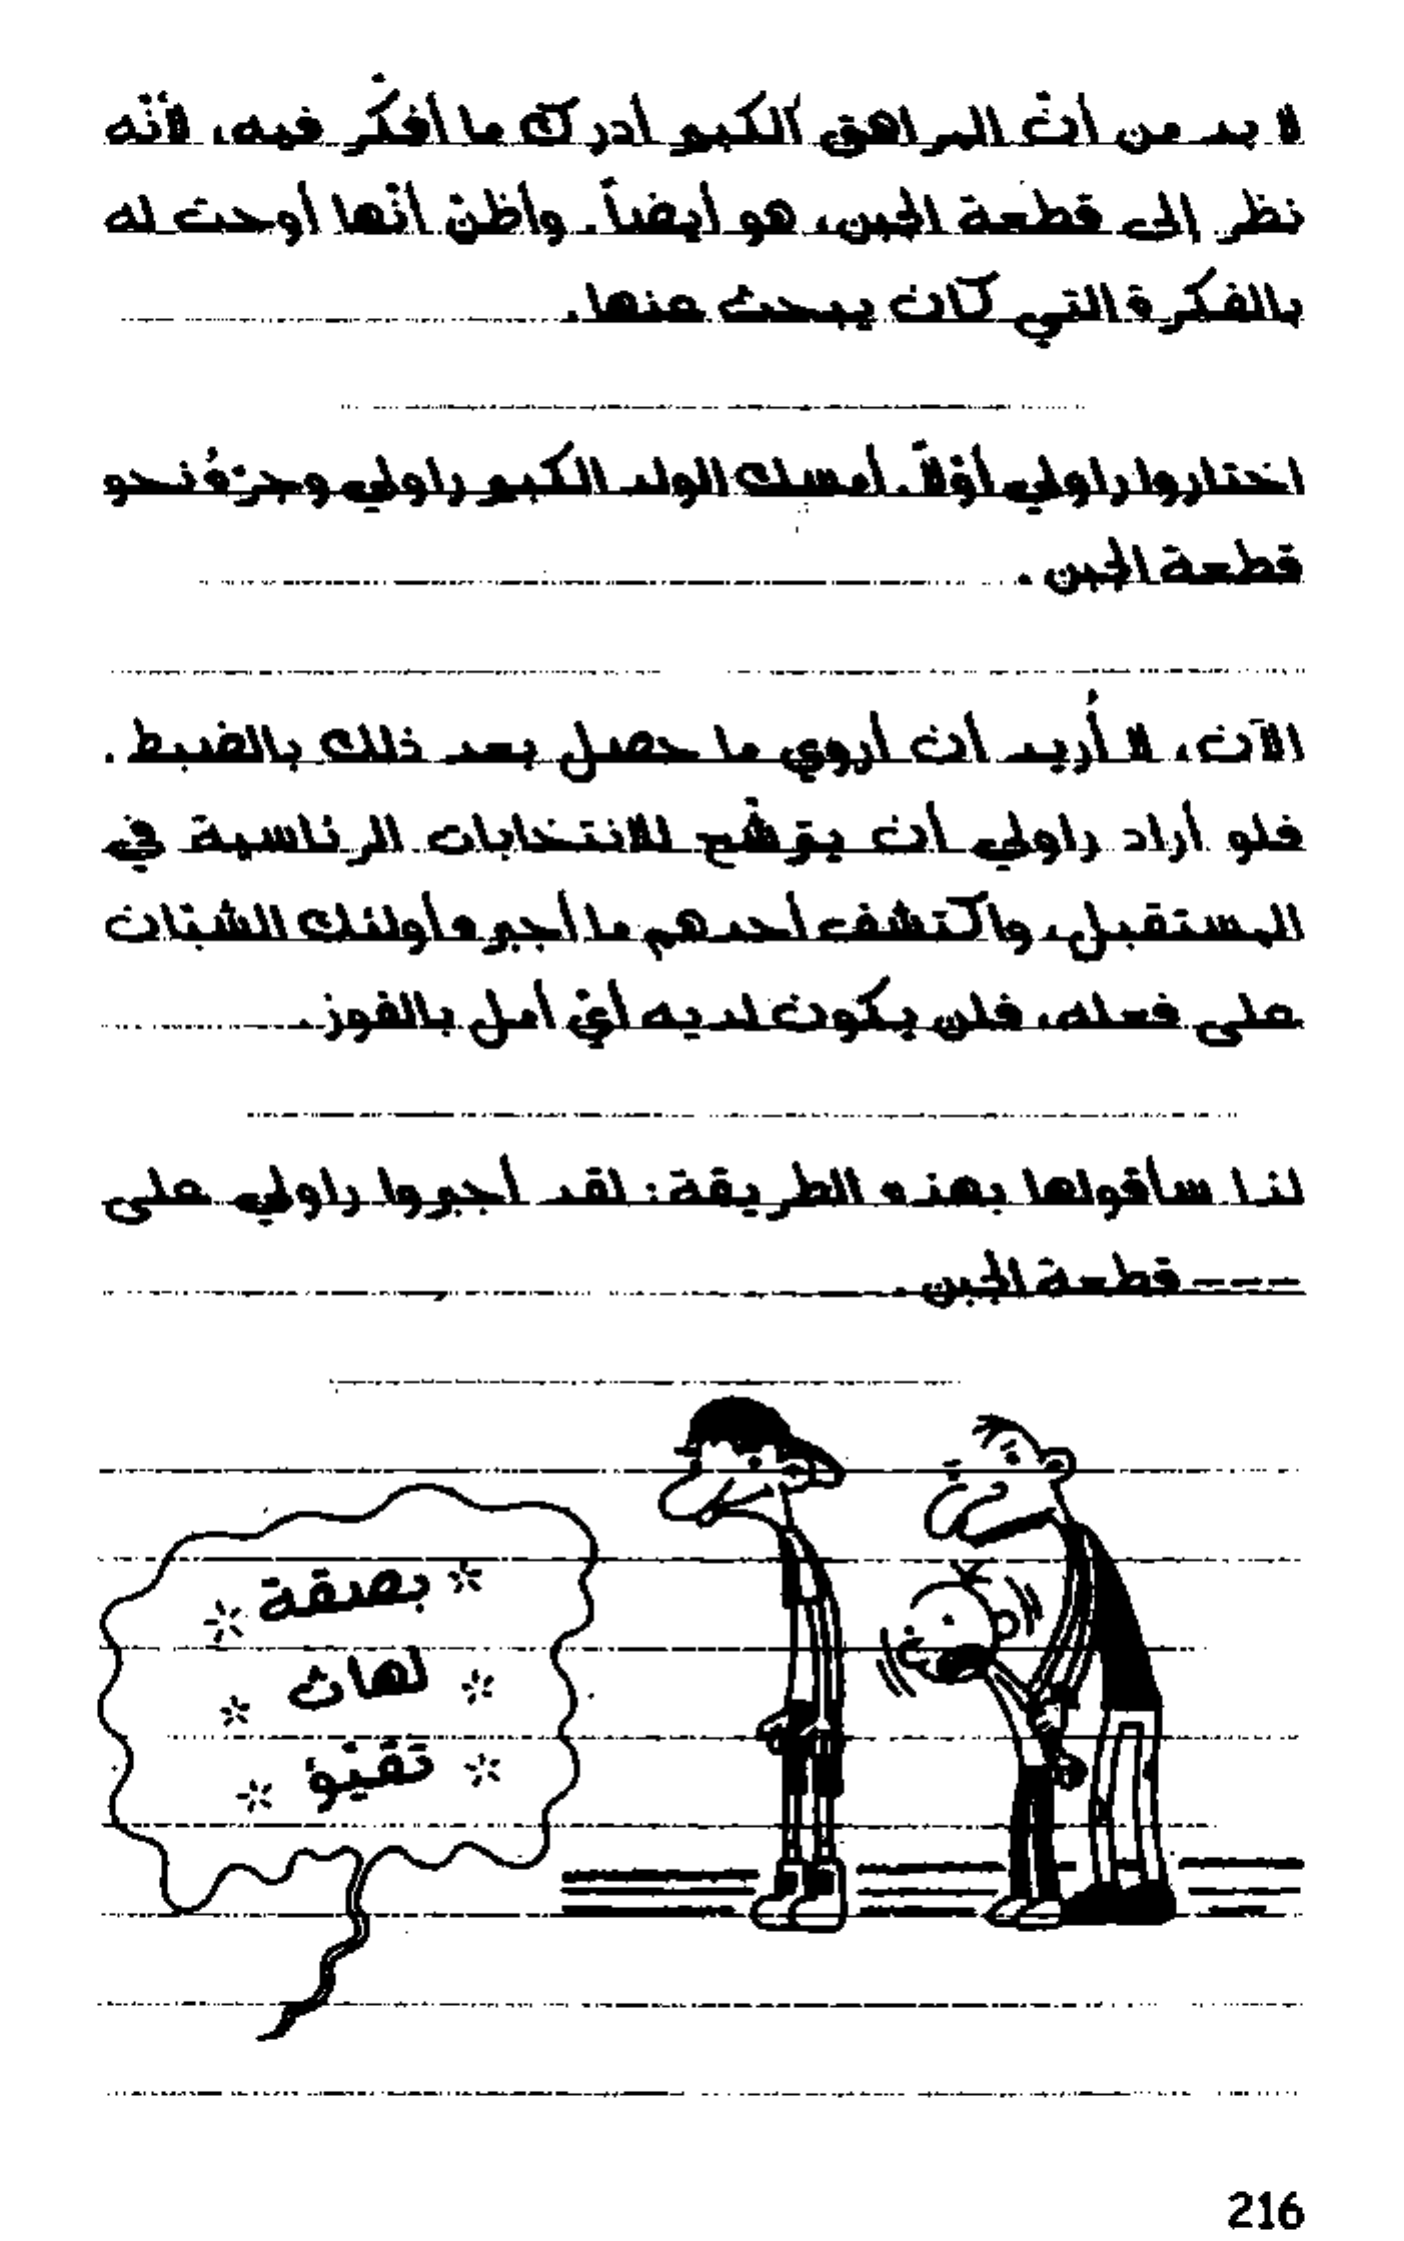 لا بد من أنّ المراهق الكبير أدرك ما أفكّر فيه، لأنّه
نظر إلى قطعة الجبن، هو أيضاً. وأظنّ أنّها أوحت له
بالفكرة التي كان يبحث عنها.
اختاروا راولي أوّلاً. أمسك الولد الكبير راولي وجرّهُ نحو
قطعة الجبن.
الآن، لا أُريد أن أروي ما حصل بعد ذلك بالضبط.
فلو أراد راولي أن يترشّح للانتخابات الرئاسية في
المستقبل، واكتشف أحدهم ما أجبره أولئك الشبّان
على فعله، فلن يكون لديه أيّ أمل بالفوز.
لذا سأقولها بهذه الطريقة: لقد أجبروا راولي على
--- قطعة الجبن.
بصقة
لهاث
تقيّؤ
216